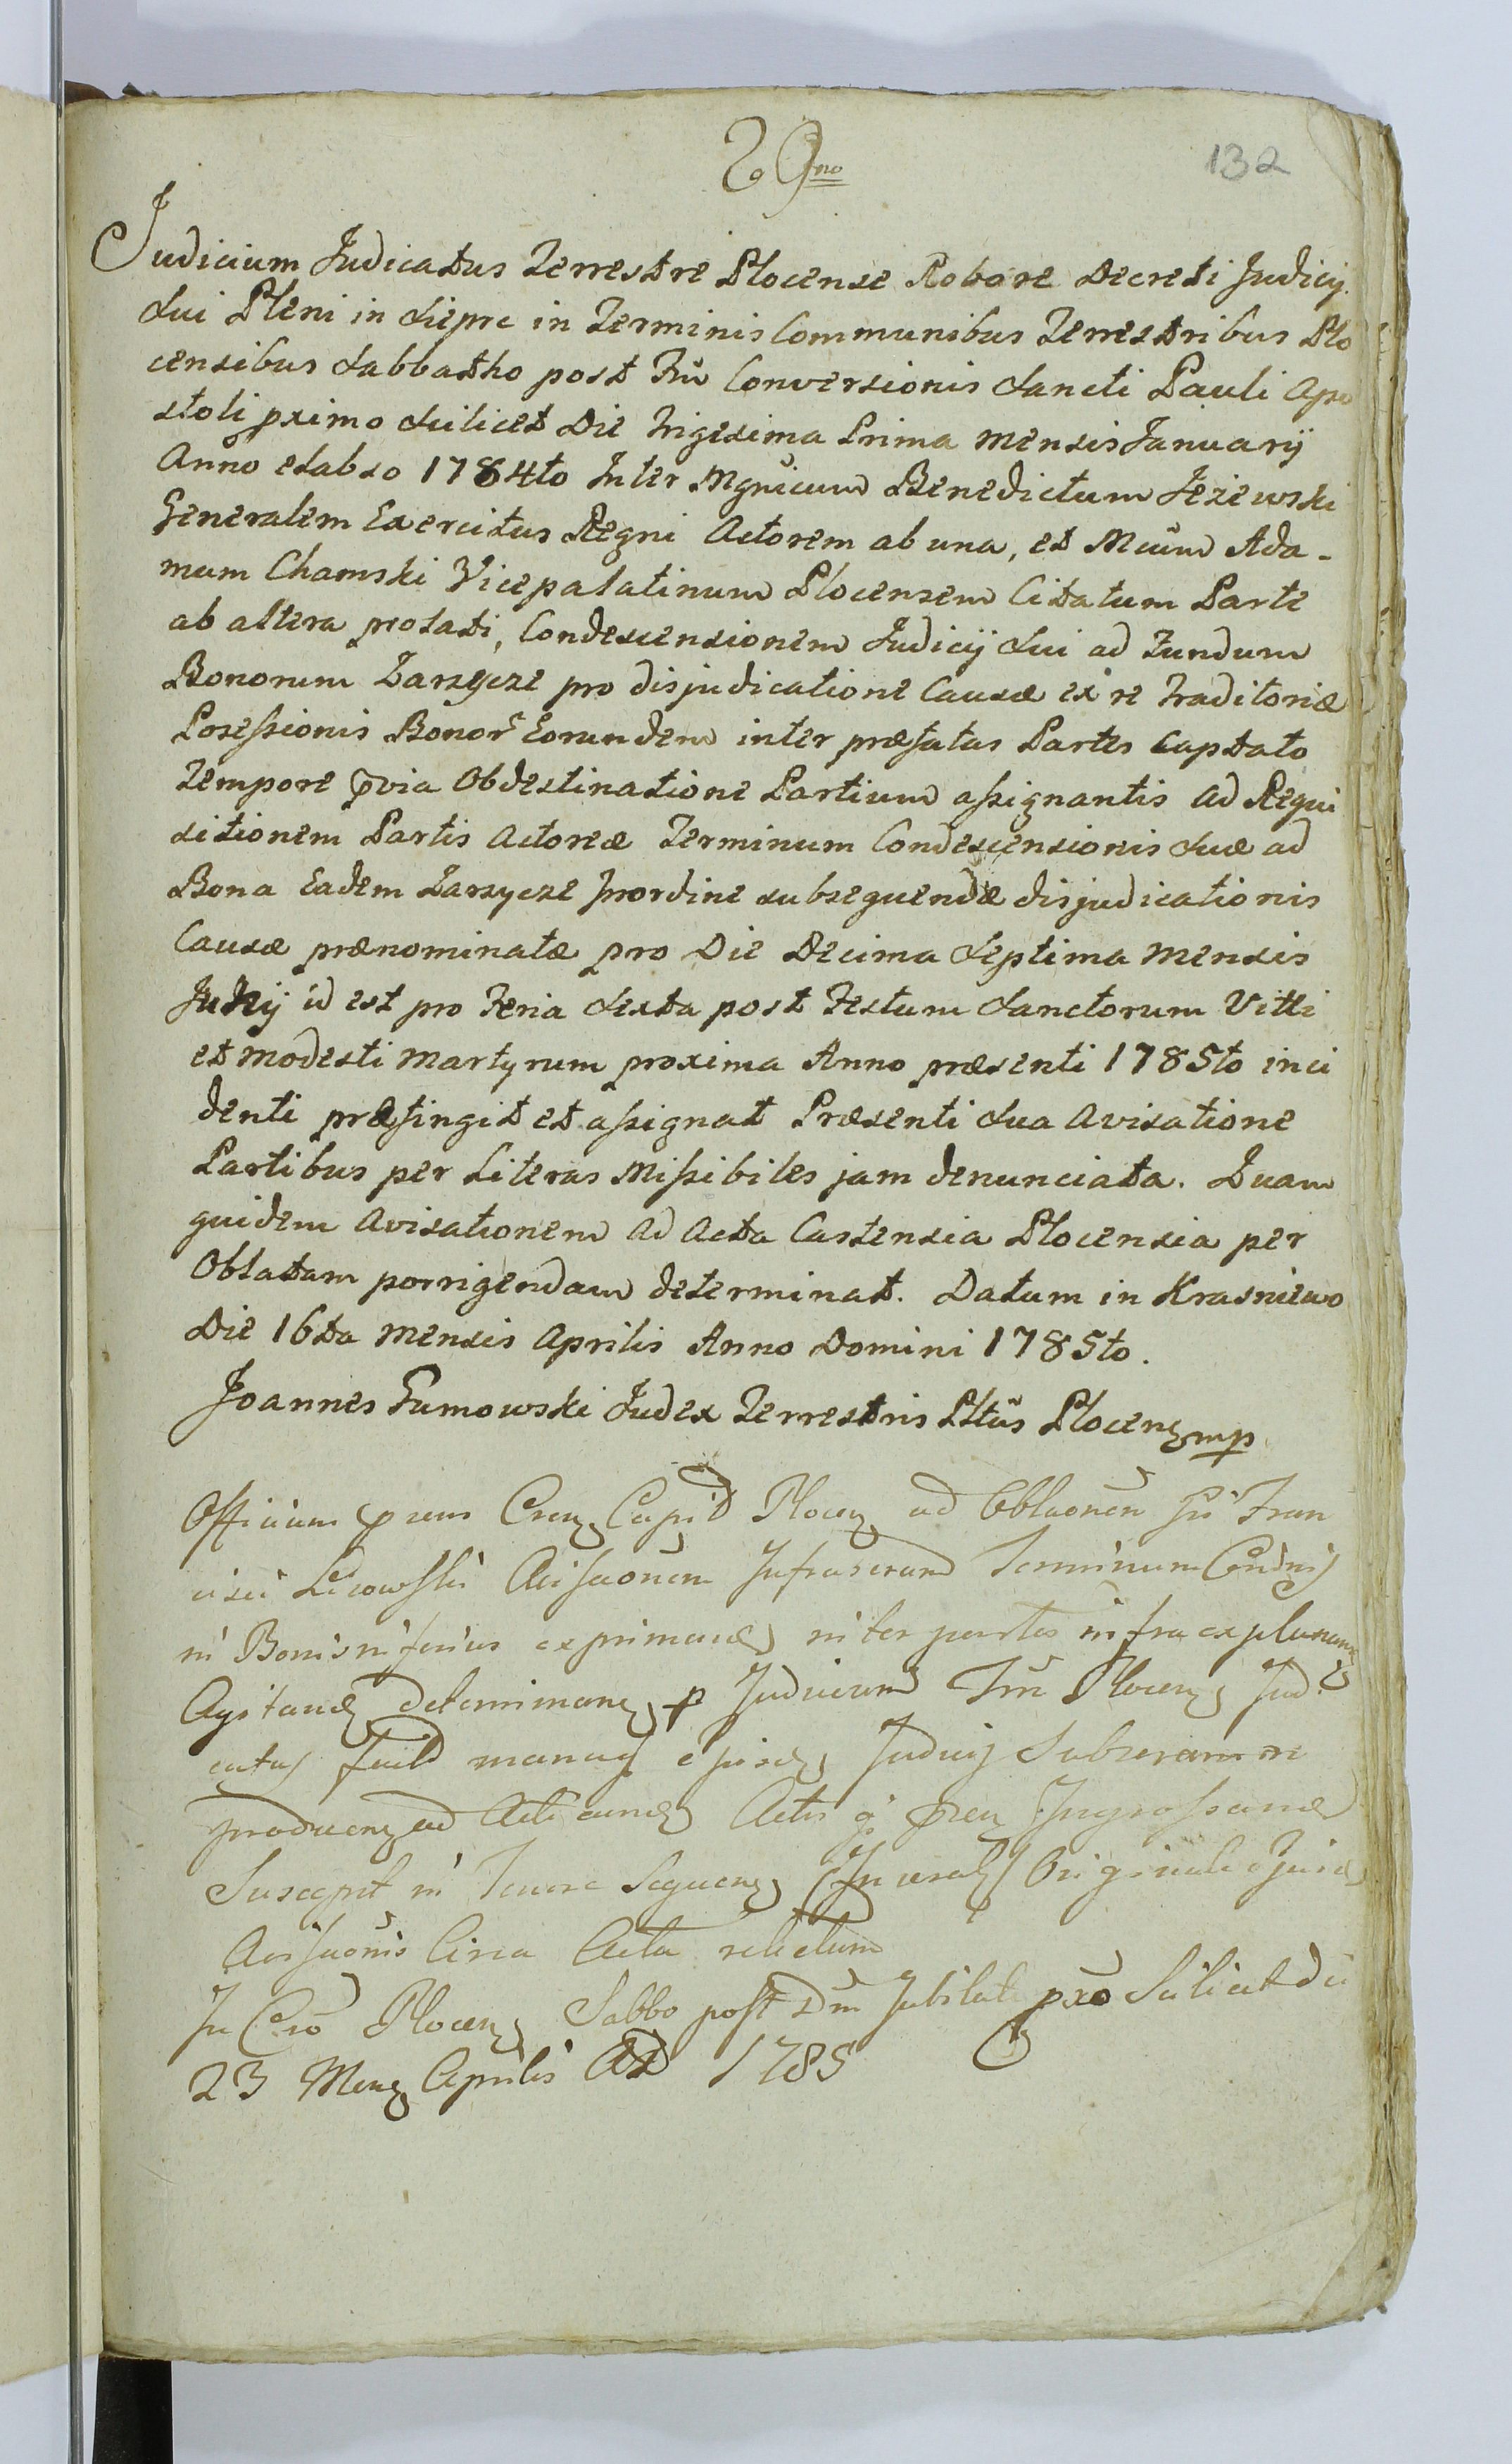 29no
132
Judicium Judicatus Terrestre Plocense Robore Decreti Judicij
Sui Pleni in Sieprc in Terminis Communibus Terrestribus Plo
censibus Sabbatho post Ftũ Conversionis Sancti Pauli Apo
stoli pximo Scilicet Die Trigesima Prima Mensis Januarij
Anno elabso 1784to Inter Mgnicum Benedictum Jeżewski
Generalem Exercitus Regni Actorem ab una, et Mcum Ada-
mum Chamski Vicepalatinum Plocensem Citatum Parte
ab altera prolati, Condescensionem Judicij Sui ad Fundum
Bonorum Zarzycze pro disjudicatione Causæ ex re Traditoriæ
Possessionis Bonor Eorundem inter præfatas Partes Captato
Tempore pvia Obdestinatione Partium assignantis ad Requi
sitionem Partis Actoreæ Terminum Condescensionis Suæ ad
Bona Eadem Zarzycze Inordine subsequendæ disjudicationis
Causæ prænominatæ pro Die Decima Septima Mensis
Junij id est pro Feria Sexta post Festum Sanctorum Viti
et Modesti Martyrum proxima Anno præsenti 1785to inci
denti præfingit et assignat Præsenti Sua Avisatione
Partibus per Literas Missibiles jam denunciata. Quam
quidem Avisationem ad Acta Castensia Plocensia per
Oblatam porrigendam determinat. Datum in Krasniewo
Die 16ta Mensis Aprilis Anno Domini 1785to.
Joannes Gumowski Judex Terrestris Pltũs Plocen mp
Officium pns Cren Capit Plocen ad Oblaonem Fran
cisci Avisaonem Infrascrum Terminum
in Bonis inferius exprimend inter partes infra explanan
Agitand determinan p Judicium Plocen Jud
catus manu ejusd Judicij
producen ad Acticand Actis q pren Ingrossand
Suscepit in Tenore Sequen Originali ejusd
Avisaonis Circa Acta relictum
In Cro Plocen Sabbo post Dm Jubilate pxo Scilicet di
23 Men Aprilis AD 1785